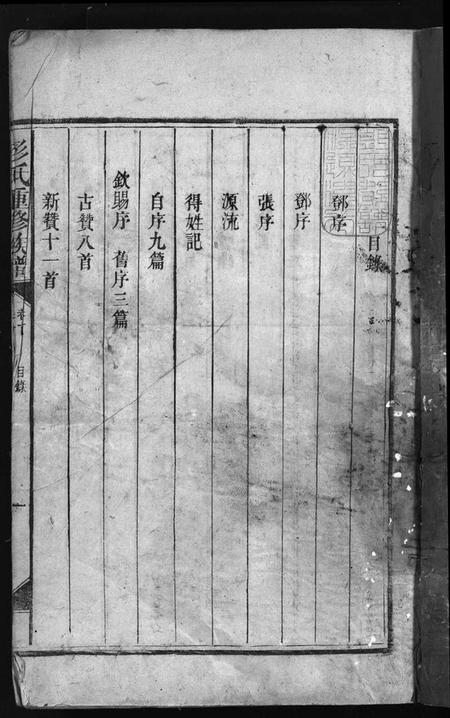 目錄
鄧序
鄧序
張序
源流
得姓記
自序九篇
欽賜序 舊序三篇
古贊八首
新贊十一首
彭氏重修族譜 卷首 目錄 一